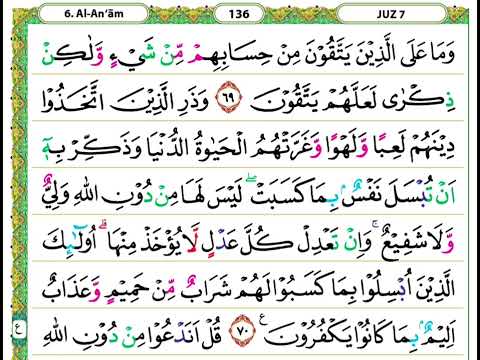 6. Al-An'ām 136 JUZ 7
وَمَا عَلَى الَّذِيْنَ يَتَّقُوْنَ مِنْ حِسَابِهِمْ مِّنْ شَيْءٍ وَّلٰكِنْ
ذِكْرٰى لَعَلَّهُمْ يَتَّقُوْنَ ۝٦٩ وَذَرِ الَّذِيْنَ اتَّخَذُوْا
دِيْنَهُمْ لَعِبًا وَّلَهْوًا وَّغَرَّتْهُمُ الْحَيٰوةُ الدُّنْيَا وَذَكِّرْ بِهٖٓ
اَنْ تُبْسَلَ نَفْسٌۢ بِمَا كَسَبَتْۖ لَيْسَ لَهَا مِنْ دُوْنِ اللّٰهِ وَلِيٌّ
وَّلَا شَفِيْعٌۚ وَاِنْ تَعْدِلْ كُلَّ عَدْلٍ لَّا يُؤْخَذْ مِنْهَاۗ اُولٰۤىِٕكَ
الَّذِيْنَ اُبْسِلُوْا بِمَا كَسَبُوْا لَهُمْ شَرَابٌ مِّنْ حَمِيْمٍ وَّعَذَابٌ
اَلِيْمٌۢ بِمَا كَانُوْا يَكْفُرُوْنَ ࣖ ۝٧٠ قُلْ اَنَدْعُوْا مِنْ دُوْنِ اللّٰهِ
ع